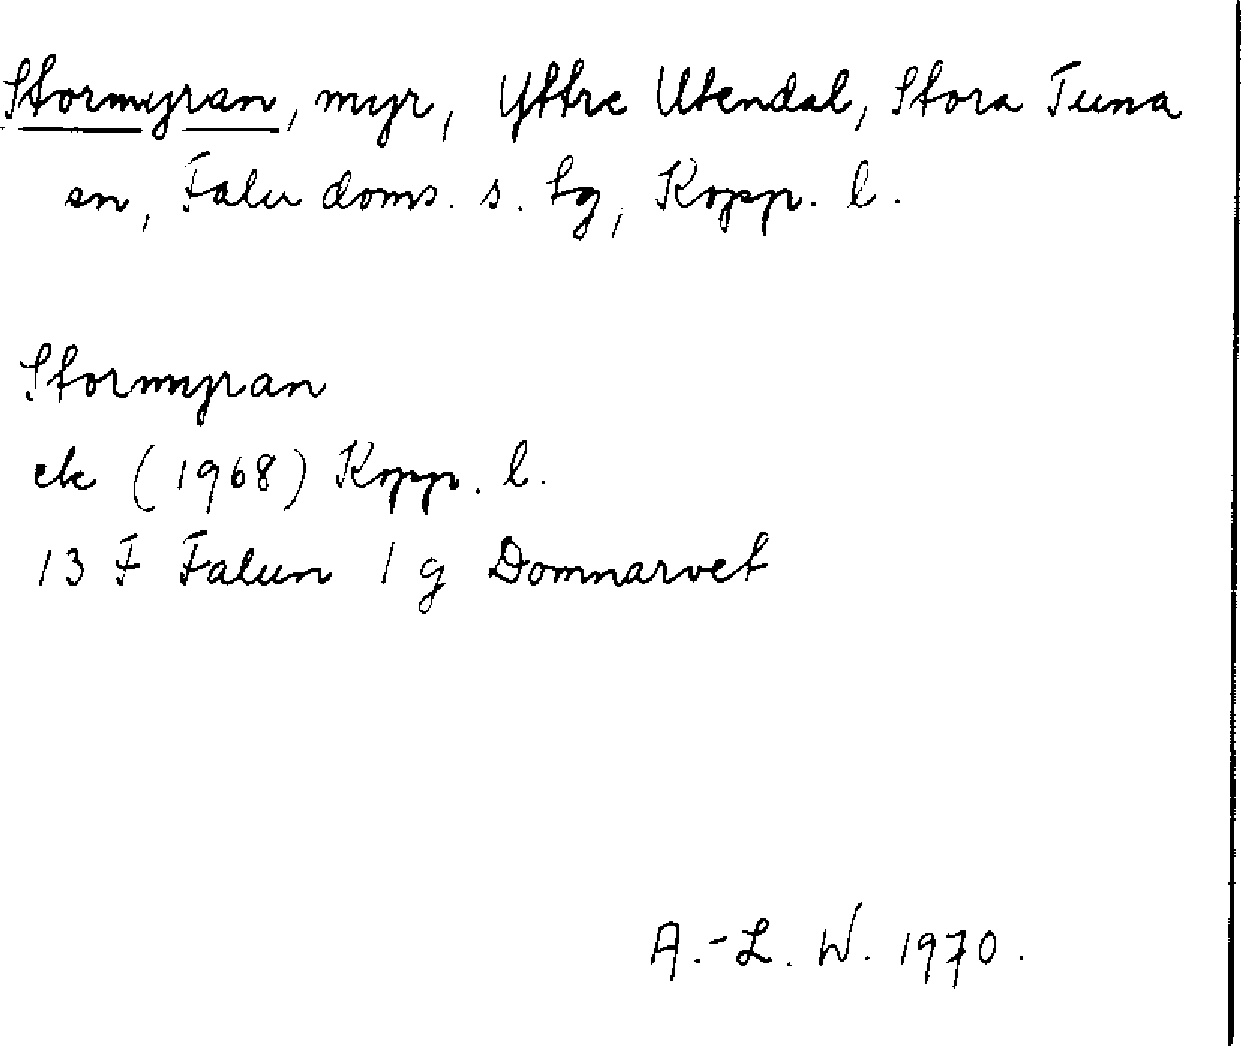 Stormyran, myr, Yttre Utendal, Stora Tuna
sn, Falu doms. s. tg, Kopp. l.
Stormyran
ek (1968) Kopp. l.
13 F Falun 1 g Domnarvet
A.-L. W. 1970.